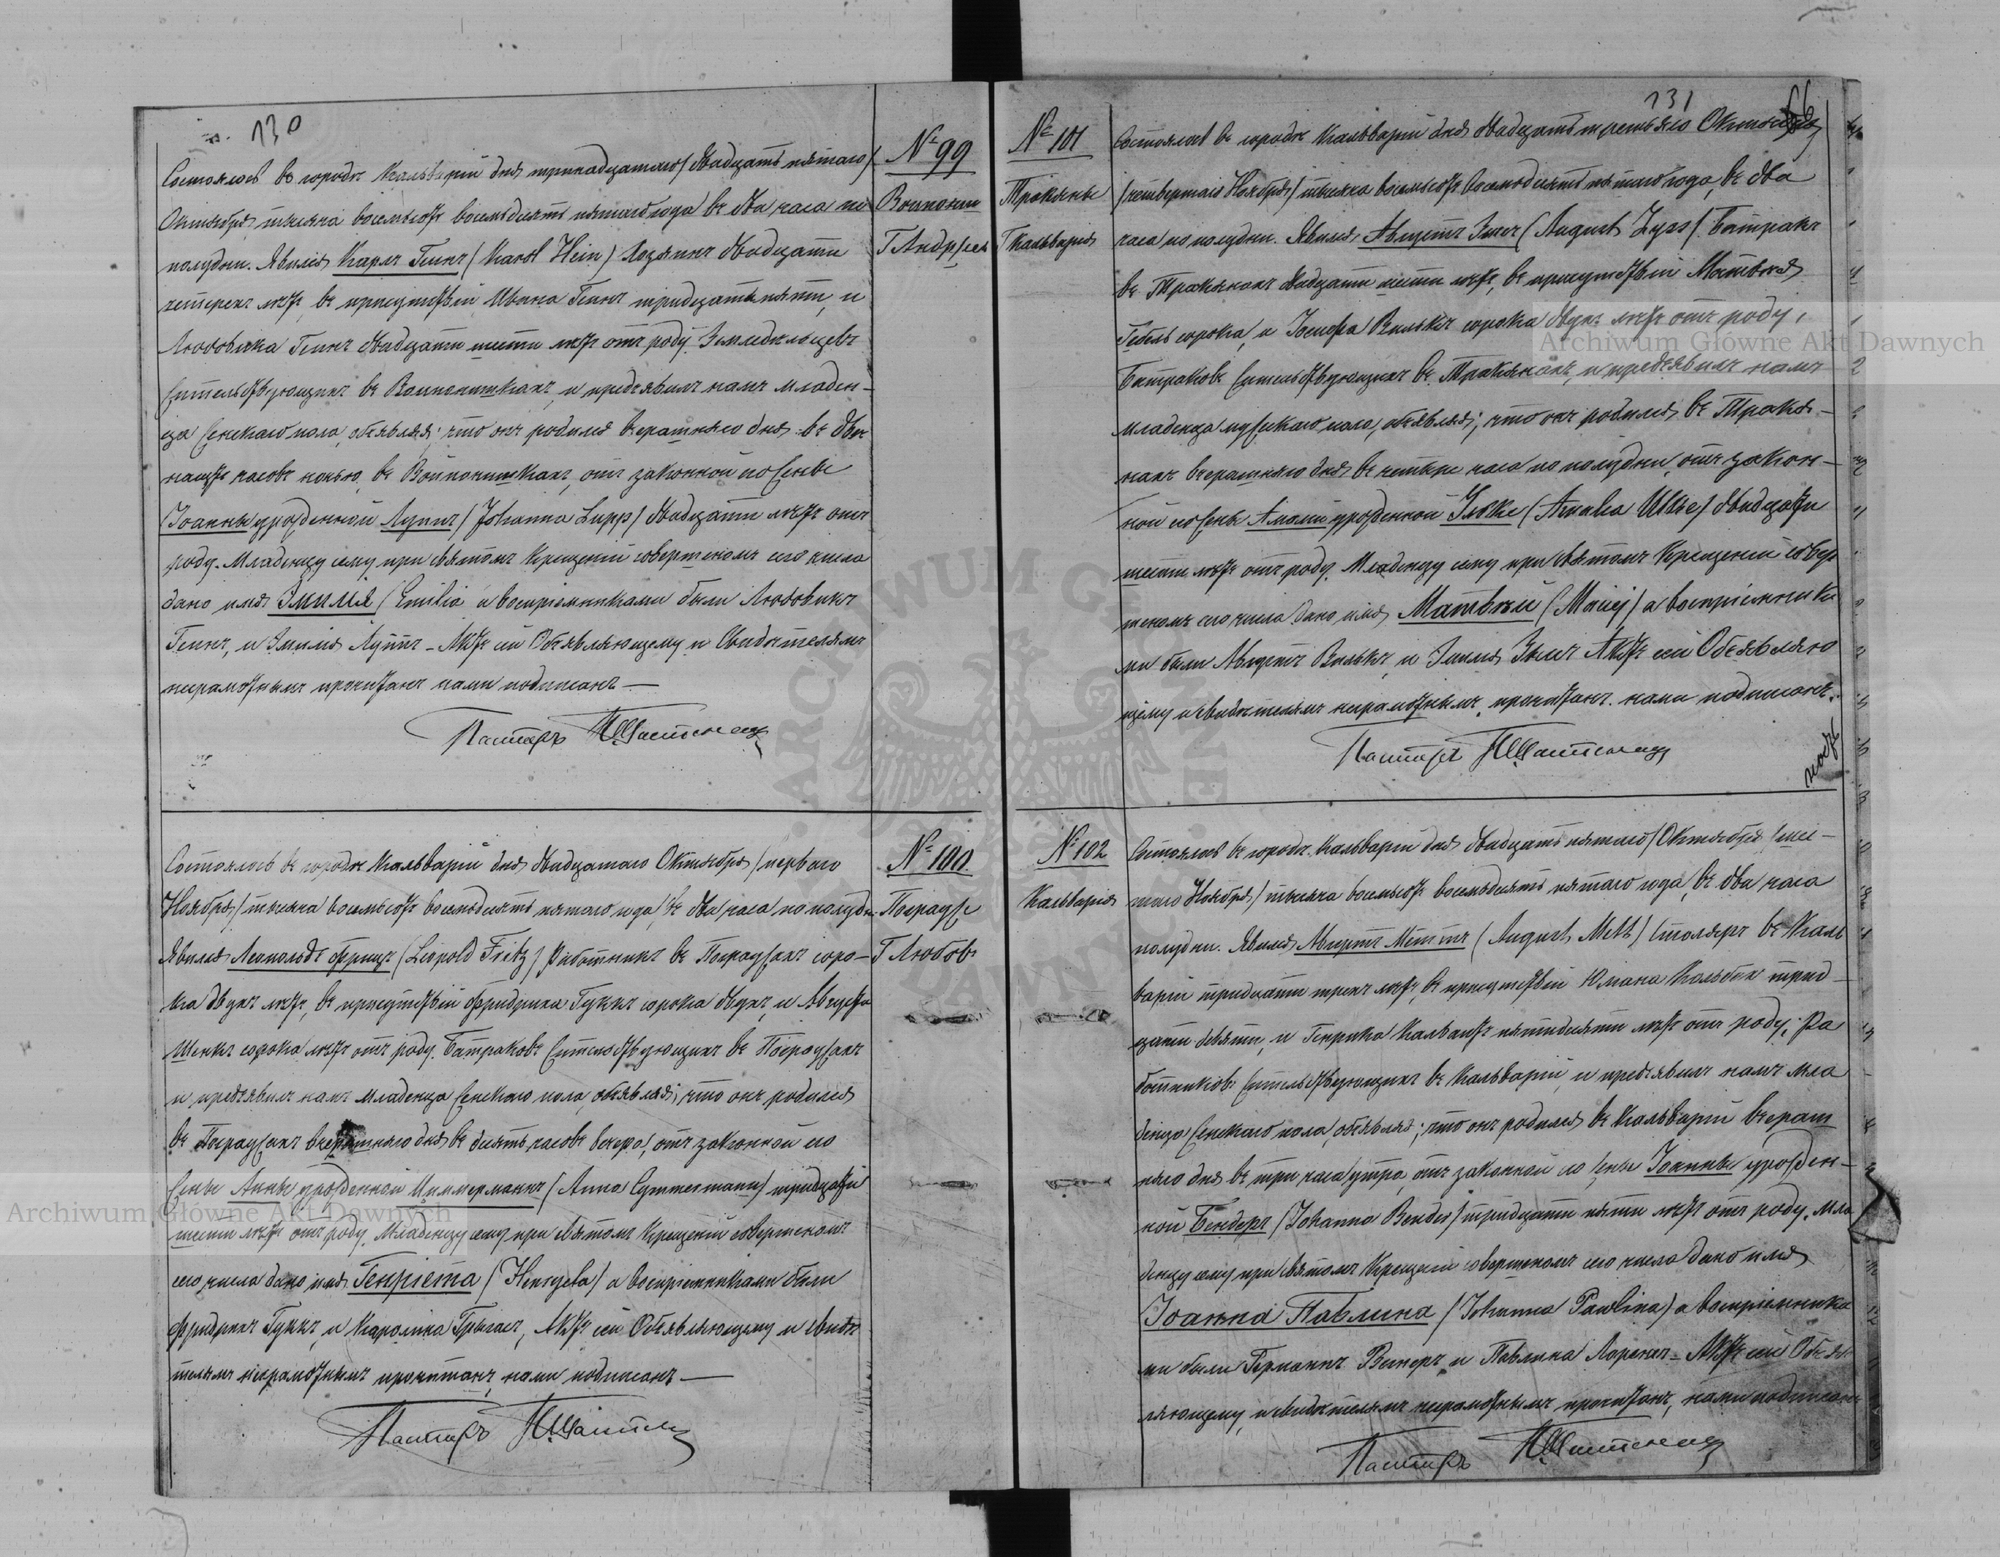 130
№ 99
Войпониш
Г Андр
Состоялось въ городѣ Кальваріи дня тринадцатаго /двадцать пятаго/
Октября тысяча восемьсотъ восемьдесятъ пятаго года въ два часа по
полудни. Явился Карлъ Геинъ (Karol Hein) Хозяинъ двадцати
четырехъ лѣтъ, въ присутствіи Ивана Геинъ тридцати пяти, и
Людовика Геинъ двадцати шести лѣтъ отъ роду. Земледѣльцевъ
жительствующихъ въ Войпонишкахъ, и предъявилъ намъ младен-
ца женскаго пола, объявляя; что онъ родился вчерашняго дня въ двѣ-
надцать часовъ ночью, въ Войпонишкахъ, отъ законной его жены
Іоанны урожденной Луппъ /Johanna Lupp/ двадцати лѣтъ отъ
роду. Младенцу сему при святомъ Крещеніи совершеномъ сего числа
дано имя Эмилія /Emilia и воспріемниками были Людовикъ
Геинъ, и Эмилія Луппъ – Актъ сей Объявляющему и Свидѣтелямъ
неграмотнымъ прочитанъ нами подписанъ —
Пасторъ
№ 100.
Пограуже
Г Любов
Состоялось въ городѣ Кальваріи дня двадцатаго Октября /перваго
Ноября/ тысяча восемьсотъ восемьдесятъ пятаго года, въ два часа по полудни
Явился Леопольдъ Фрицъ (Leopold Fritz) Работникъ въ Пограужахъ соро-
ка двухъ лѣтъ, въ присутствіи Фридриха Гуккъ сорока двухъ, и Августа
Шенкъ сорока лѣтъ отъ роду. Батраковъ жительствующихъ въ Пограужахъ
и предъявилъ намъ младенца женскаго пола, объявляя; что онъ родился
въ Пограужахъ вчерашняго дня въ десять часовъ вечера, отъ законной его
жены Анны урожденной Циммерманнъ (Anna Cymmermann) тридцати
шести лѣтъ отъ роду. Младенцу сему при святомъ Крещеніи совершеномъ
сего числа дано имя Генріета / Henryeta / а воспріемниками были
Фридрихъ Гуккъ, и Каролина Актъ сей Объявляющему и свидѣ
телямъ неграмотнымъ прочитанъ, нами подписанъ —
Пасторъ
131
66
№ 101
Тракяны
Г Кальварія
Состоялось въ городѣ Кальваріи дня двадцать третьяго Октября
/четвертаго Ноября/ тысяча восемьсотъ восемьдесятъ пятаго года, въ два
часа по полудни. Явился, Августъ Зысъ (August Zyss) Батракъ
въ Тракянахъ двадцати шести лѣтъ, въ присутствіи Матвея
сорока, и Іосифа Вилькъ сорока двухъ лѣтъ отъ роду,
Батраковъ жительствующихъ въ Тракянахъ, и предъявилъ намъ
младенца мужскаго пола, объявляя; что онъ родился въ Тракя-
нахъ вчерашняго дня въ четыре часа по полудни, отъ закон-
ной его жены Амаліи урожденной (Amalia двадцати
шести лѣтъ отъ роду. Младенцу сему при святомъ Крещеніи совер
шеномъ сего числа дано имя Матвѣй (Maciej) а воспріемника
ми были Августъ Вилькъ, и Эмилія Зысъ Актъ сей Объявляю
щему и свидѣтелямъ неграмотнымъ, прочитанъ. нами подписанъ.
Пасторъ
№ 102
Кальварія
Состоялось въ городѣ Кальваріи дня двадцать пятаго /Октября шес-
таго Ноября/ тысяча восемьсотъ восемьдесятъ пятаго года, въ два часа
полудни. Явился Августъ Меттъ (August Mett) Столяръ въ Каль
варіи тридцати трехъ лѣтъ, въ присутствіи трид-
цати девяти, и Генрика пятидесяти лѣтъ отъ роду; Ра
ботниковъ жительствующихъ въ Кальваріи, и предъявилъ намъ мла
денца женскаго пола, объявляя; что онъ родился въ Кальваріи вчераш
няго дня въ три часа утра, отъ законной его жены Іоанны урожден-
ной Бендеръ /Johanna Bender/ тридцати пяти лѣтъ отъ роду. Мла
денцу сему при святомъ Крещеніи совершеномъ сего числа дано имя
Іоанна Павлина /Johanna Pawlina/ а воспріемника
ми были Германъ Винеръ, и Павлина Лоренцъ – Актъ сей Объяв
ляющему, и свидѣтелямъ неграмотнымъ прочитанъ, нами подписанъ
Пасторъ
Archiwum Główne Akt Dawnych
Archiwum Główne Akt Dawnych
ARCHIWUM GŁÓWNE AKT DAWNYCH